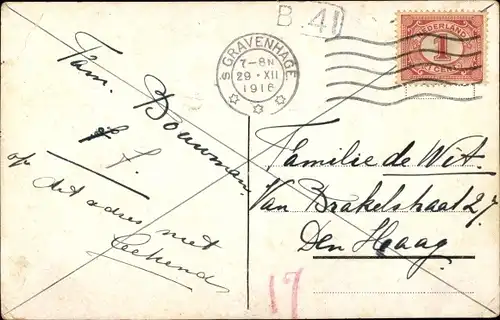 B 41
'S GRAVENHAGE
7-8N
29·XII
1916
NEDERLAND
1
CENT
Fam. Bouwman.
op dit adres niet
bekend
Familie de Wit.
Van Brakelstraat 27.
Den Haag
17